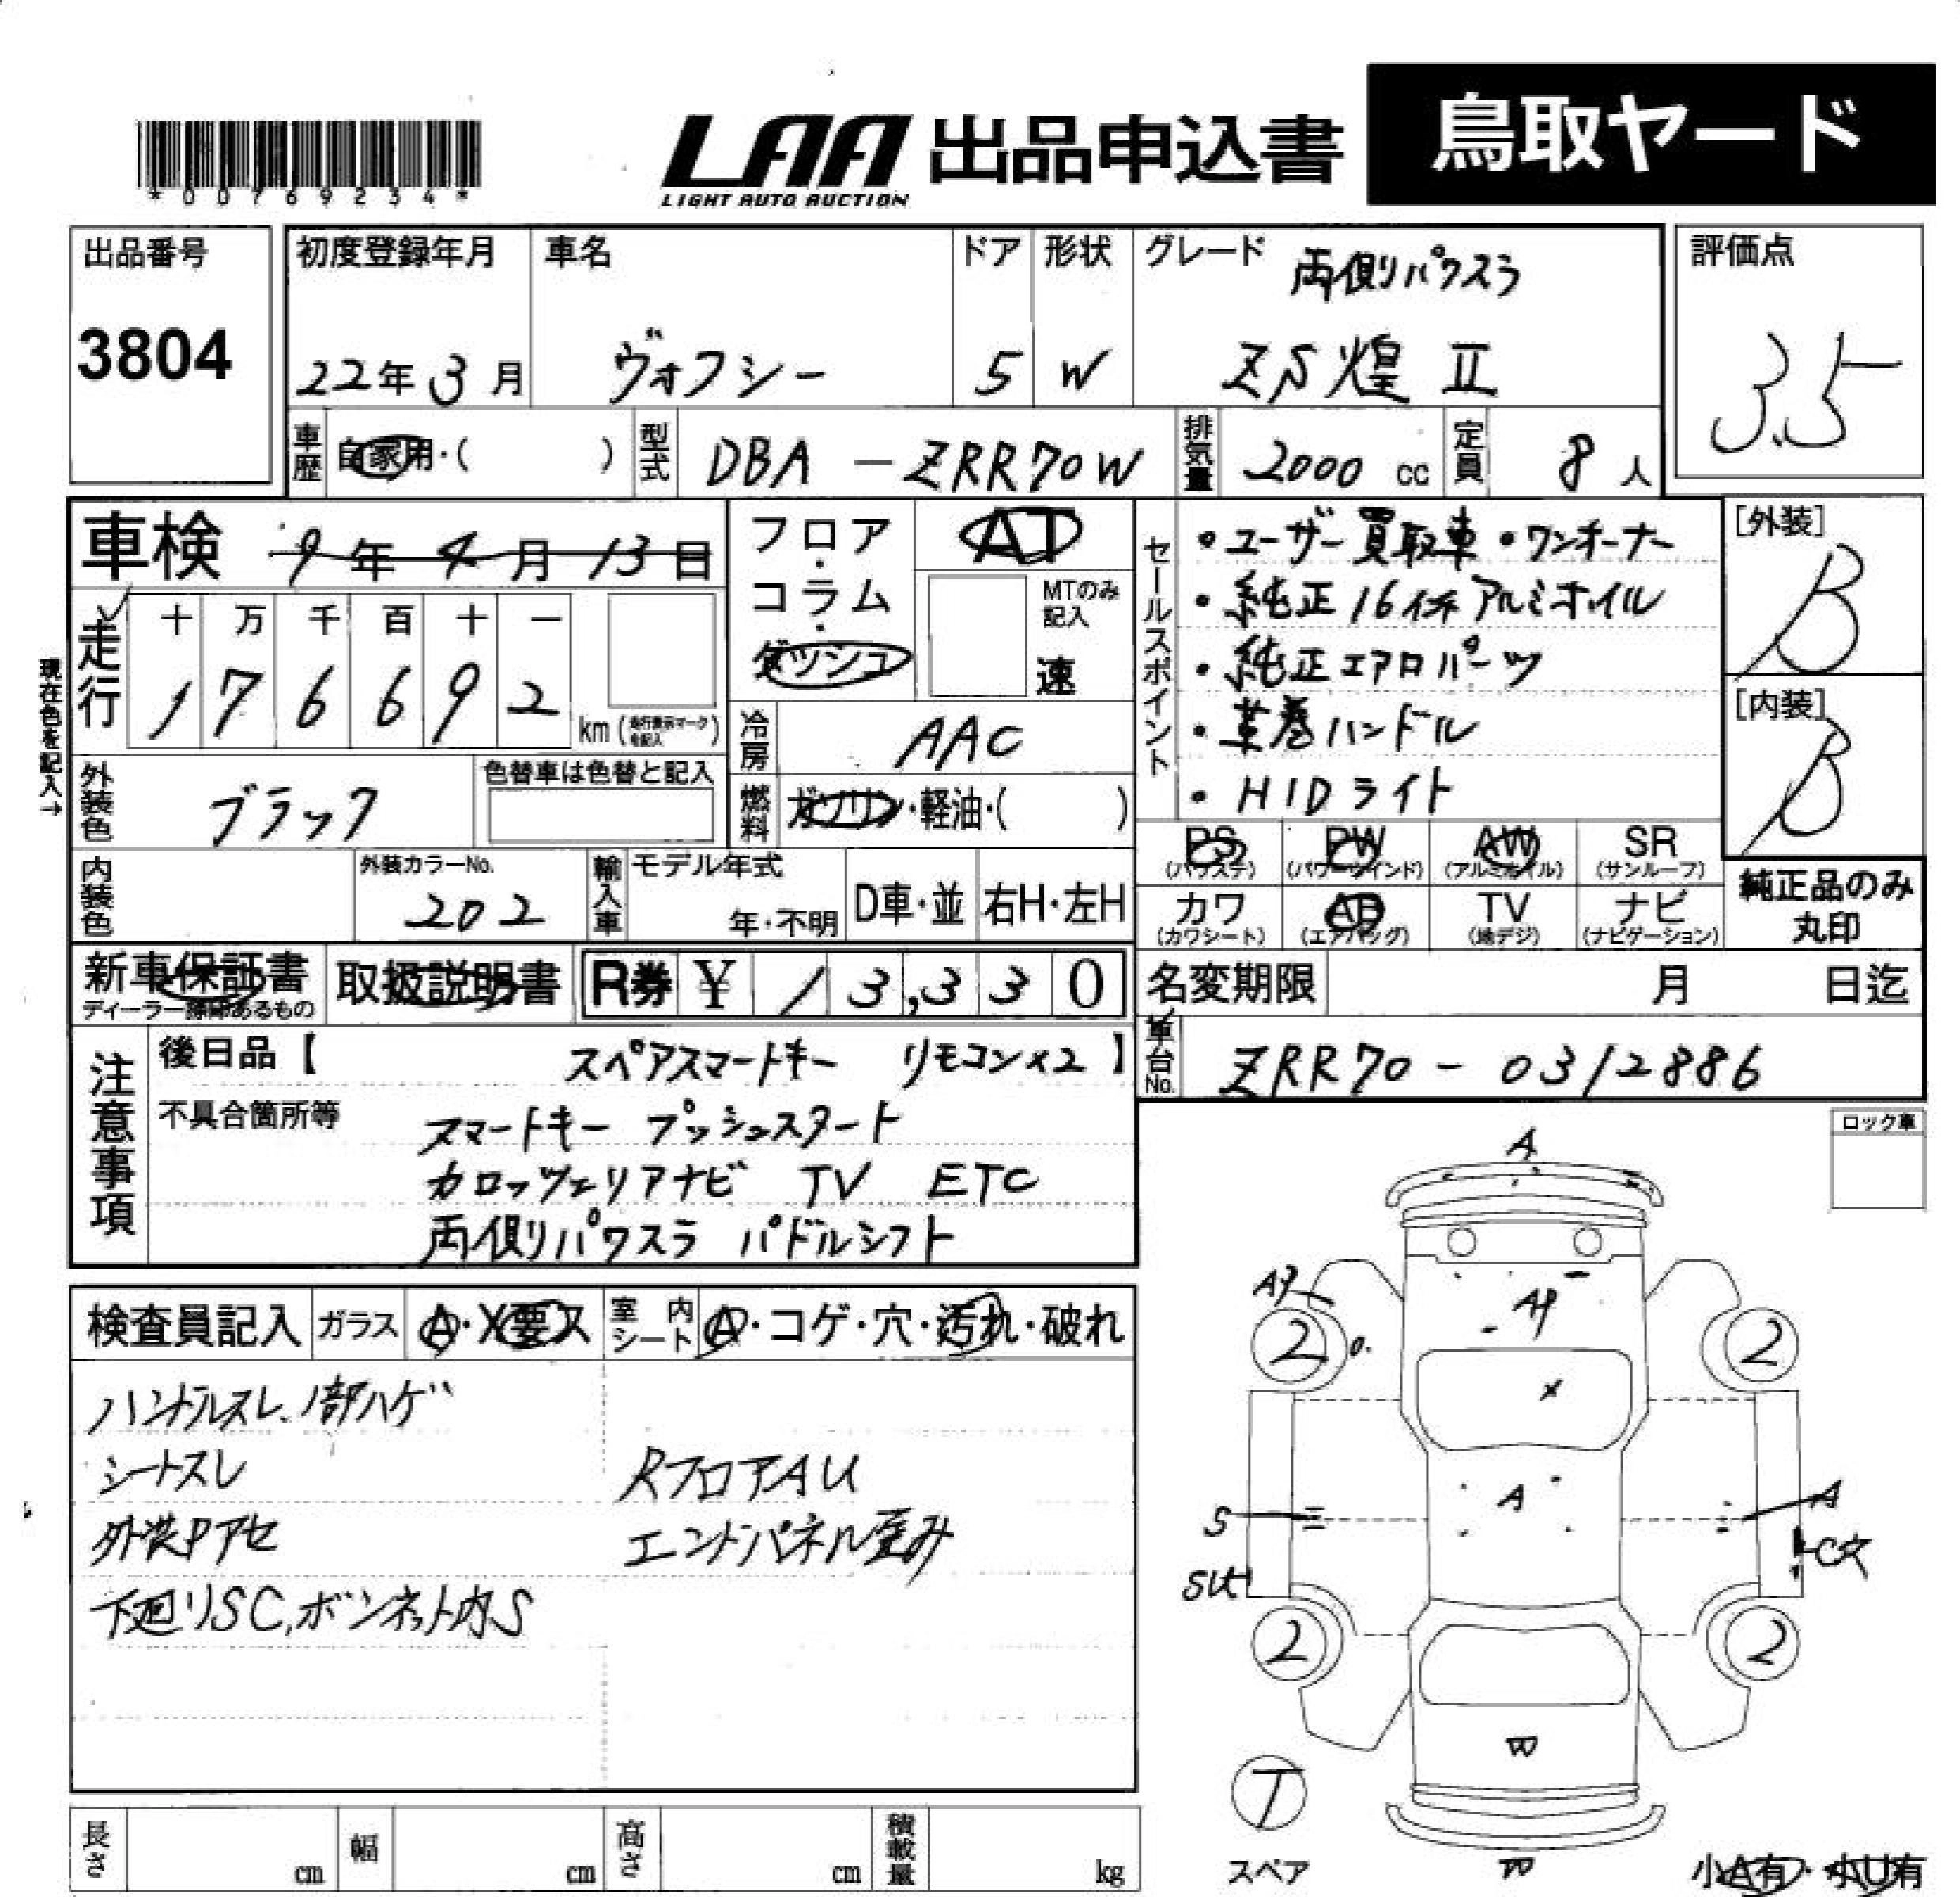 *00769234*
LAA 出品申込書 鳥取ヤード
LIGHT AUTO AUCTION
出品番号 3804
初度登録年月 22年3月
車名 ヴォクシー
ドア 5
形状 W
グレード 両側パワスラ
ZS煌 II
評価点 3.5
車歴 自家用・( )
型式 DBA-ZRR70W
排気量 2000 cc
定員 8人
車検 9年4月13日
走行 十万千百十一
176692 km (走行表示マークを記入)
現在色を記入→
外装色 ブラック
色替車は色替と記入
内装色
外装カラーNo. 202
フロア・コラム・ダッシュ
AT
MTのみ記入
速
冷房 AAC
燃料 ガソリン・軽油・( )
輸入車 モデル年式 年・不明 D車・並 右H・左H
セールスポイント
・ユーザー買取車 ・ワンオーナー
・純正16インチアルミホイル
・純正エアロパーツ
・革巻ハンドル
・HIDライト
[外装] B
[内装] B
PS (パワステ) PW (パワーウインド) AW (アルミホイル) SR (サンルーフ)
カワ (カワシート) AB (エアバッグ) TV (地デジ) ナビ (ナビゲーション)
純正品のみ丸印
新車保証書
ディーラー捺印あるもの
取扱説明書
R券 ¥ 13,330
名変期限 月 日迄
車台No. ZRR70-0312886
注意事項
後日品【 スペアスマートキー リモコン×2 】
不具合箇所等 スマートキー プッシュスタート
カロッツェリアナビ TV ETC
両側パワスラ パドルシフト
検査員記入 ガラス A・X要ス 室内シート A・コゲ・穴・汚れ・破れ
ハンドルスレ、1部ハゲ
シートスレ RフロアAU
外装Pアセ エンドパネル歪み
下廻りSC,ボンネット内S
ロック車
A
AP
2 2
X
A
S A
2 2
T
スペア
小A有・小U有
長さ cm 幅 cm 高さ cm 積載量 kg